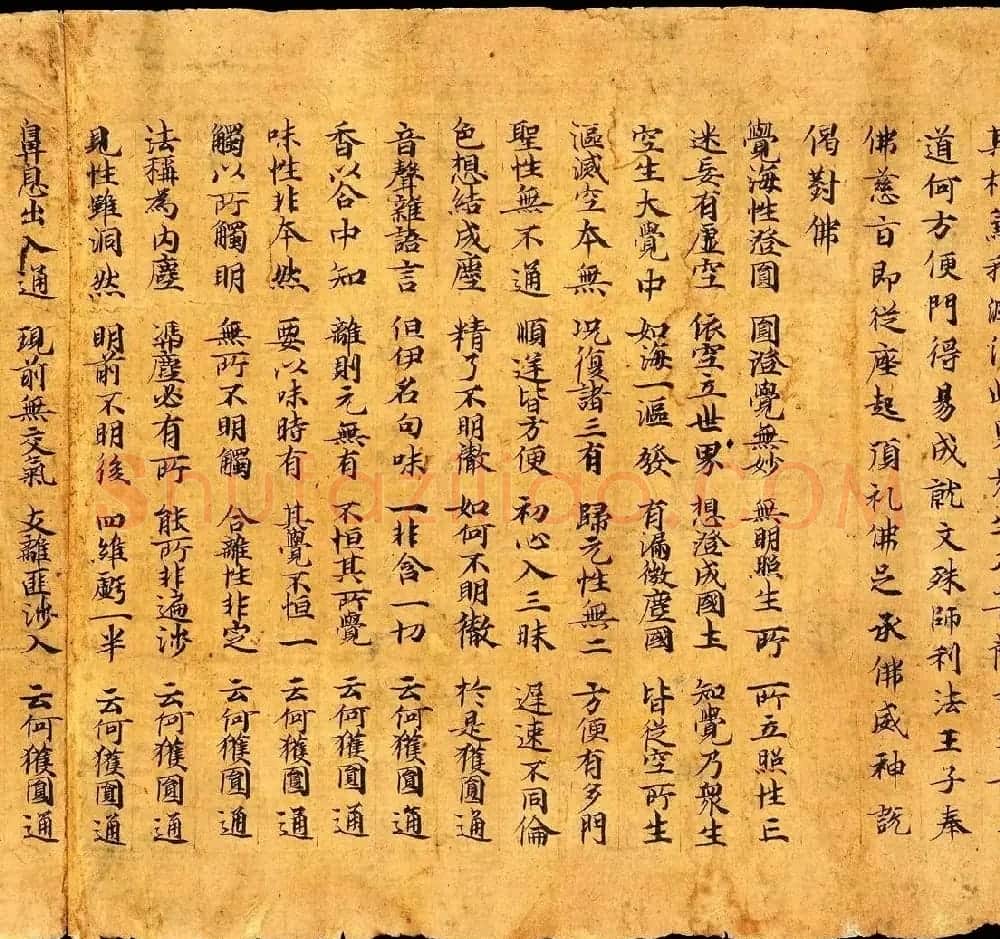 道何方便門得易成就文殊師利法王子奉
佛慈旨即從座起頂礼佛足承佛威神說
偈對佛
覺海性澄圓 圓澄覺無妙 無明照生所 所立照性亡
迷妄有虛空 依空立世界 想澄成國土 知覺乃衆生
空生大覺中 如海一漚發 有漏微塵國 皆從空所生
漚滅空本無 況復諸三有 歸元性無二 方便有多門
聖性無不通 順逆皆方便 初心入三昧 遲速不同倫
色想結成塵 精了不明徹 如何不明徹 於是獲圓通
音聲雜語言 但伊名句味 一非含一切 云何獲圓通
香以合中知 離則元無有 不恒其所覺 云何獲圓通
味性非本然 要以味時有 其覺不恒一 云何獲圓通
觸以所觸明 無所不明觸 合離性非定 云何獲圓通
法稱為內塵 憑塵必有所 能所非遍涉 云何獲圓通
見性雖洞然 明前不明後 四維虧一半 云何獲圓通
鼻息出入通 現前無交氣 支離匪涉入 云何獲圓通
shufaziliao.COM